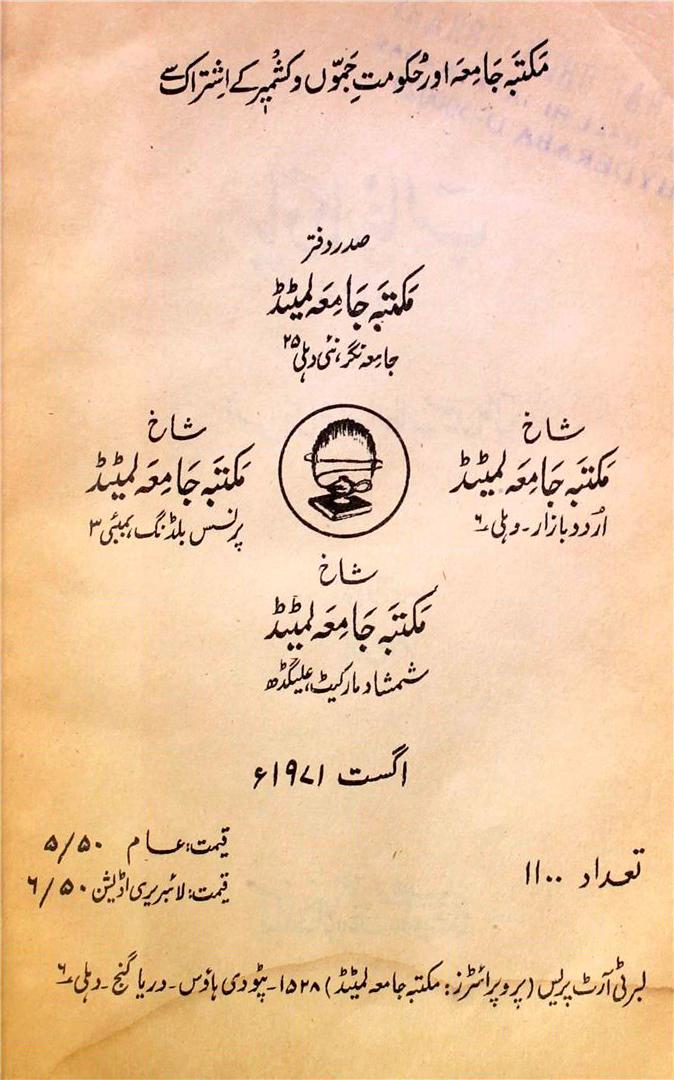 مکتبَہ جَامِعَہ اور حُکومتِ جَمّوں و کشمیر کے اِشتراک سے
صدر دفتر
مکتبَہ جَامِعَہ لمیٹیڈ
جامعہ نگر، نئی دہلی ۲۵
شاخ
مکتبَہ جَامِعَہ لمیٹیڈ
اُردو بازار۔ دہلی ۶
شاخ
مکتبَہ جَامِعَہ لمیٹیڈ
پرنسس بلڈنگ، بمبئی ۳
شاخ
مکتبَہ جَامِعَہ لمیٹیڈ
شمشاد مارکیٹ، علیگڑھ
اگست ۱۹۷۱ء
تعداد ۱۱۰۰
قیمت: عام ۵/۵۰
قیمت: لائبریری اڈیشن ۶/۵۰
لبرٹی آرٹ پریس (پروپرائٹرز: مکتبہ جامعہ لمیٹیڈ) ۱۵۲۸۔ پٹودی ہاؤس۔ دریا گنج۔ دہلی ۶